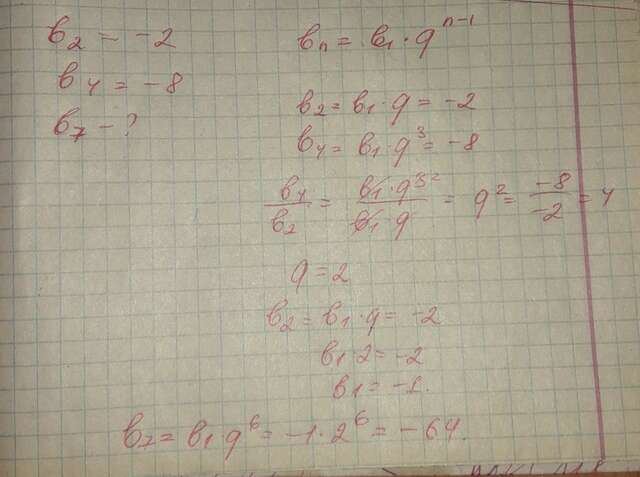 b₂ = -2
b₄ = -8
b₇ - ?
bₙ = b₁ · q^(n-1)
b₂ = b₁ · q = -2
b₄ = b₁ · q³ = -8
b₄/b₂ = b₁ · q³ ²/b₁ · q = q² = -8/-2 = 4
q = 2
b₂ = b₁ · q = -2
b₁ · 2 = -2
b₁ = -1.
b₇ = b₁ · q⁶ = -1 · 2⁶ = -64.